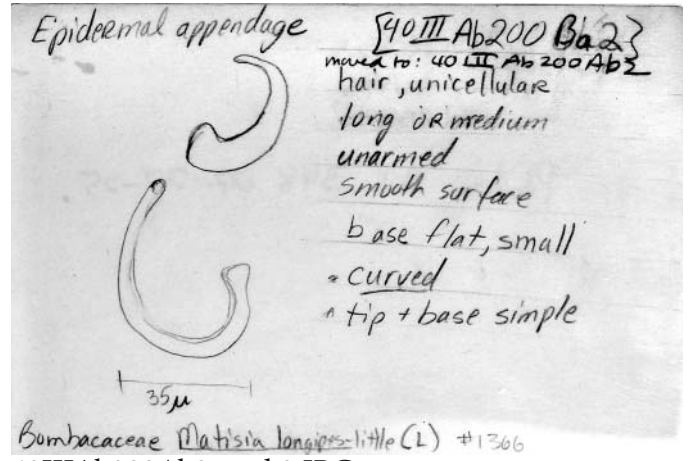 Epidermal appendage
{40 III Ab200 Ba2}
moved to: 40 III Ab 200 Ab
hair, unicellular
long or medium
unarmed
smooth surface
base flat, small
curved
tip + base simple
35µ
Bombacaceae Matisia longipes-little (L) #1366